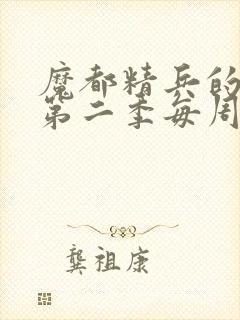 魔都精兵的
第二季每周
龚祖康